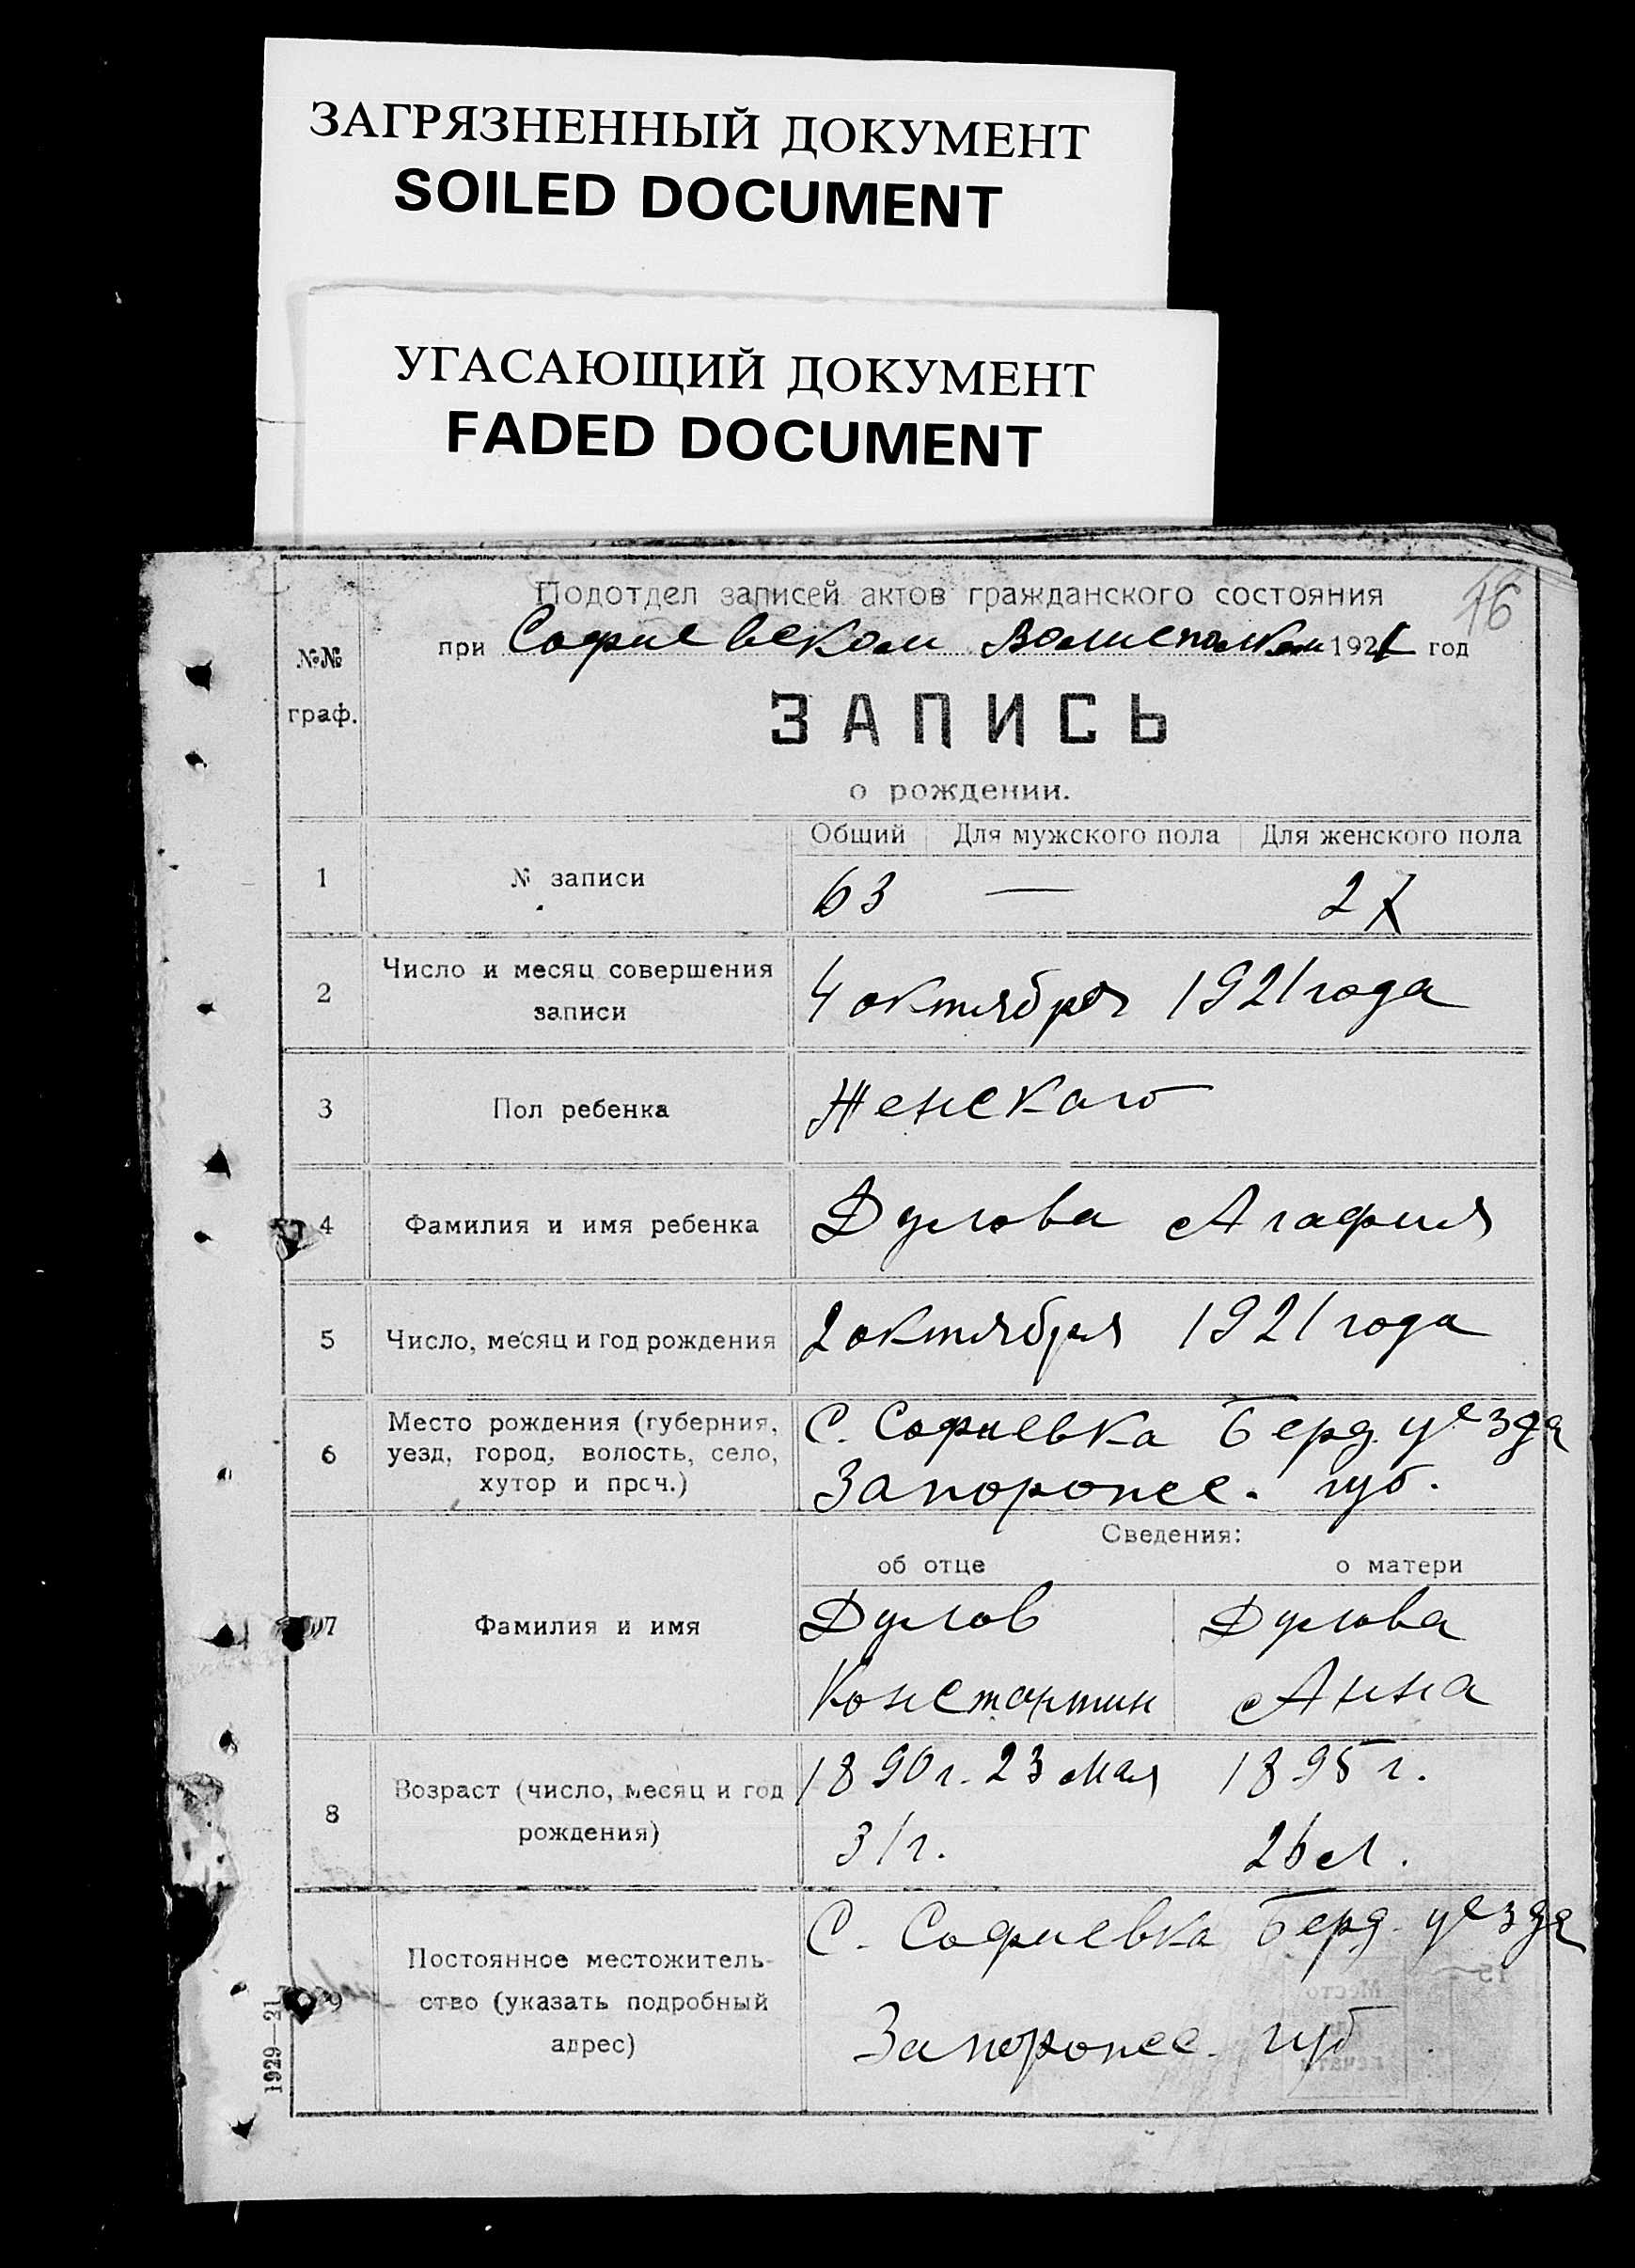 ЗАГРЯЗНЕННЫЙ ДОКУМЕНТ
SOILED DOCUMENT
УГАСАЮЩИЙ ДОКУМЕНТ
FADED DOCUMENT
16
Подотдел записей актов гражданского состояния
при Софиевском Волисполкоме 1921 год
№№
граф.
ЗАПИСЬ
о рождении.
Общий Для мужского пола Для женского пола
1 № записи 63 — 27
2 Число и месяц совершения
записи
4 октября 1921 года
3 Пол ребенка Женскаго
4 Фамилия и имя ребенка Дулова Агафия
5 Число, месяц и год рождения 2 октября 1921 года
6 Место рождения (губерния,
уезд, город, волость, село,
хутор и проч.)
С. Софиевка Берд. уезда
Запорожс. губ.
Сведения:
об отце о матери
7 Фамилия и имя
Дулов Дулова
Константин Анна
8 Возраст (число, месяц и год
рождения)
1890 г. 23 мая 1895 г.
31 г. 26 л.
9 Постоянное местожитель-
ство (указать подробный
адрес)
С. Софиевка Берд. уезда
Запорожс. губ
1929—21